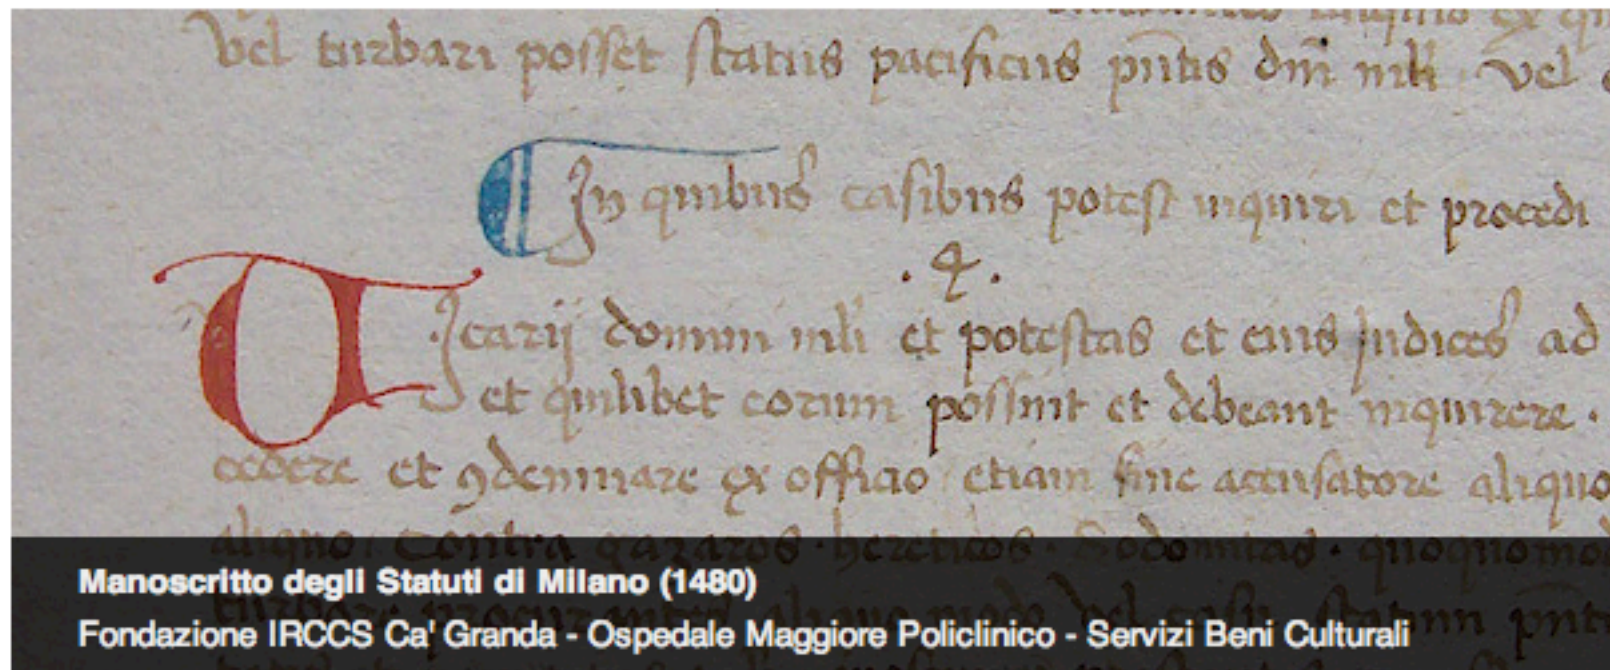 vel turbari posset status pacificus pntis dni nri vel
In quibus casibus potest inquiri et procedi
. 4 .
Vicarij domini nri et potestas et eius Judices ad
et quilibet eorum possint et debeant inquirere .
cedere et 9demnare ex officio etiam sine accusatore aliquo
aliquo . Contra gazaros . hereticos . Sodomitas . quoquomod
turbare procurantes aliquo modo vel casu statum pnt
Manoscritto degli Statuti di Milano (1480)
Fondazione IRCCS Ca' Granda - Ospedale Maggiore Policlinico - Servizi Beni Culturali